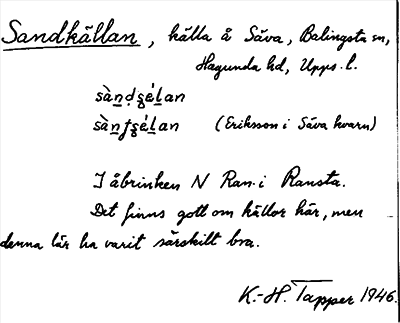 Sandkällan, källa å Säva, Balingsta sn,
Hagunda hd, Upps. l.
sàn̲dʂél̲an
sàn̲ʃʂél̲an (Eriksson i Säva kvarn)
I åbrinken N Ran. i Ransta.
Det finns gott om källor här, men
denna lär ha varit särskilt bra.
K.-H. Tapper 1946.